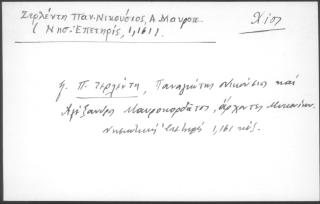 Ζερλέντη Παν. Νικούσιος, Α. Μαυροκ.
( Νησ. Επετηρίς, 1,161).
Χίος
γ. Π. Ζερλέντη, Παναγιώτης Νικούσιος και
Αλέξανδρος Μαυροκορδάτος, άρχοντες Μυκονίων.
Νησιωτική Επετηρίς 1,161 κεξ.